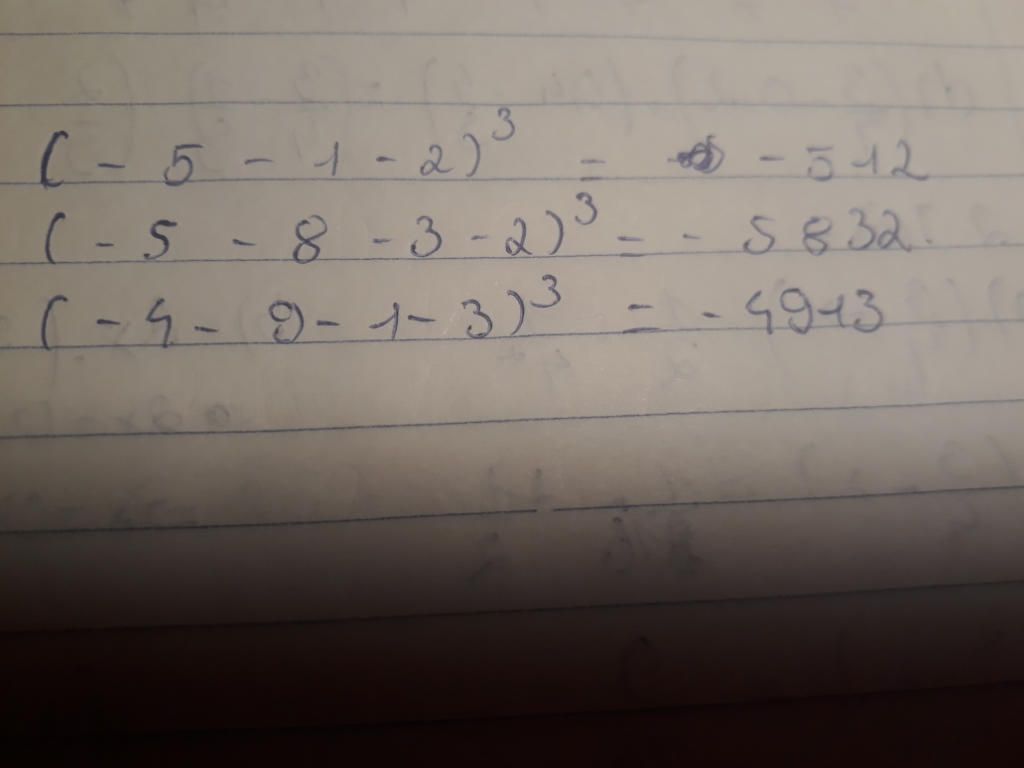 (-5-1-2)³ = -512
(-5-8-3-2)³ = -5832
(-4-9-1-3)³ = -4913